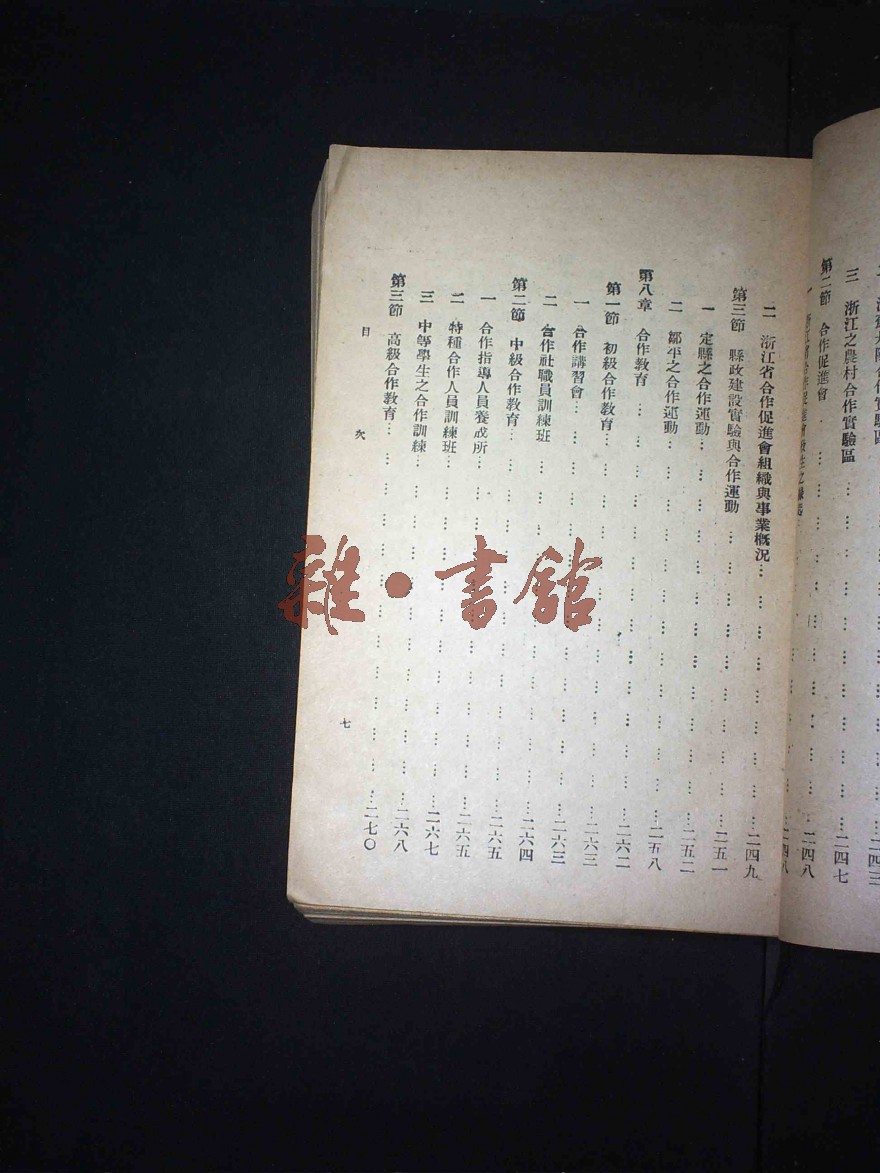 合作實驗區…二四三
三 浙江之農村合作實驗區…二四七
第二節 合作促進會…二四八
一 浙江省合作促進會發生之緣起…二四八
二 浙江省合作促進會組織與事業概況…二四九
第三節 縣政建設實驗與合作運動…二五一
一 定縣之合作運動…二五二
二 鄒平之合作運動…二五八
第八章 合作教育…二六二
第一節 初級合作教育…二六三
一 合作講習會…二六三
二 合作社職員訓練班…二六四
第二節 中級合作教育…二六五
一 合作指導人員養成所…二六五
二 特種合作人員訓練班…二六七
三 中等學生之合作訓練…二六八
第三節 高級合作教育…二七〇
目 次
七
雜·書館